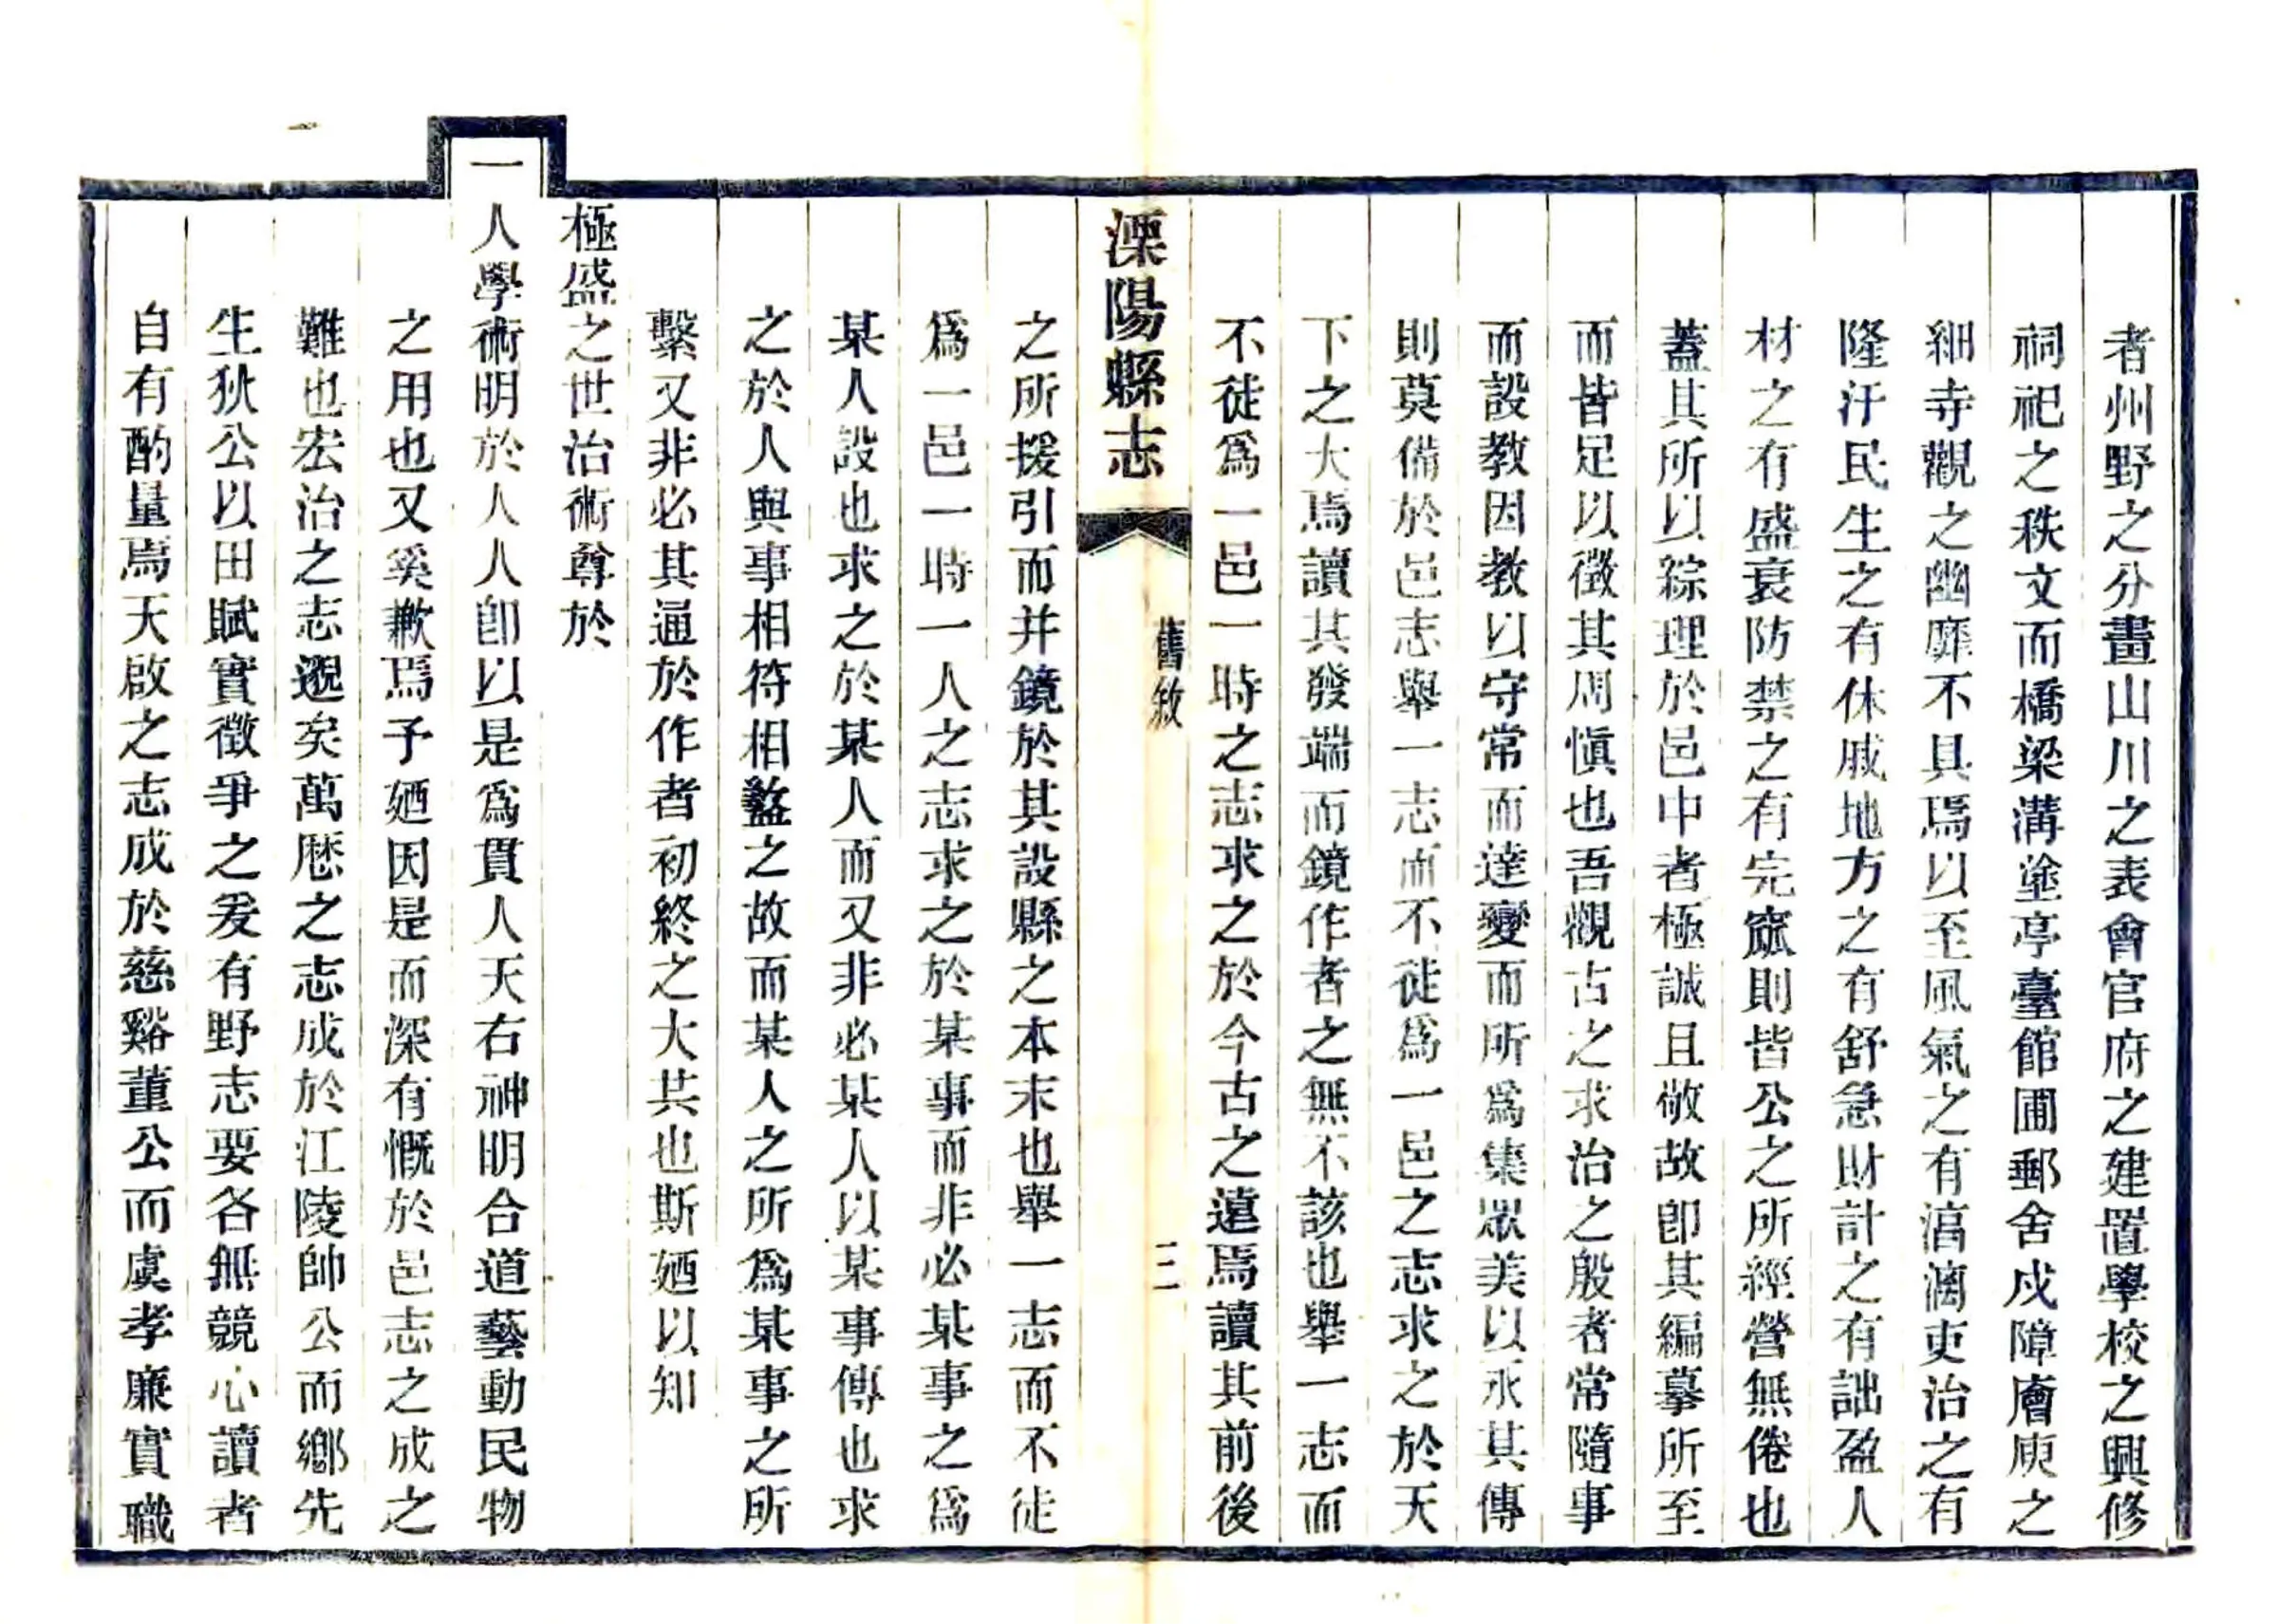 者州野之分畫山川之表會官府之建置學校之興修
祠祀之秩文而橋梁溝塗亭臺館圃郵舍戍障廥庾之
細寺觀之幽靡不具焉以至風氣之有湻漓吏治之有
隆汙民生之有休戚地方之有舒急財計之有詘盈人
材之有盛衰防禁之有完窳則皆公之所經營無倦也
蓋其所以綜理於邑中者極誠且敬故卽其編摹所至
而皆足以徵其周愼也吾觀古之求治之殷者常隨事
而設教因教以守常而達變而所爲集眾美以永其傳
則莫備於邑志舉一志而不徒爲一邑之志求之於天
下之大焉讀其發端而鏡作者之無不該也舉一志而
不徒爲一邑一時之志求之於今古之遠焉讀其前後
溧陽縣志
舊敘
三
之所援引而并鏡於其設縣之本末也舉一志而不徒
爲一邑一時一人之志求之於某事而非必某事之爲
某人設也求之於某人而又非必某人以某事傳也求
之於人與事相符相盭之故而某人之所爲某事之所
繫又非必其通於作者初終之大共也斯廼以知
極盛之世治術尊於
一人學術明於人人卽以是爲貫人天右神明合道藝動民物
之用也又奚歉焉予廼因是而深有慨於邑志之成之
難也宏治之志邈矣萬厯之志成於江陵帥公而鄉先
生狄公以田賦實徵爭之爰有野志要各無競心讀者
自有酌量焉天啟之志成於慈谿董公而虞孝廉實職